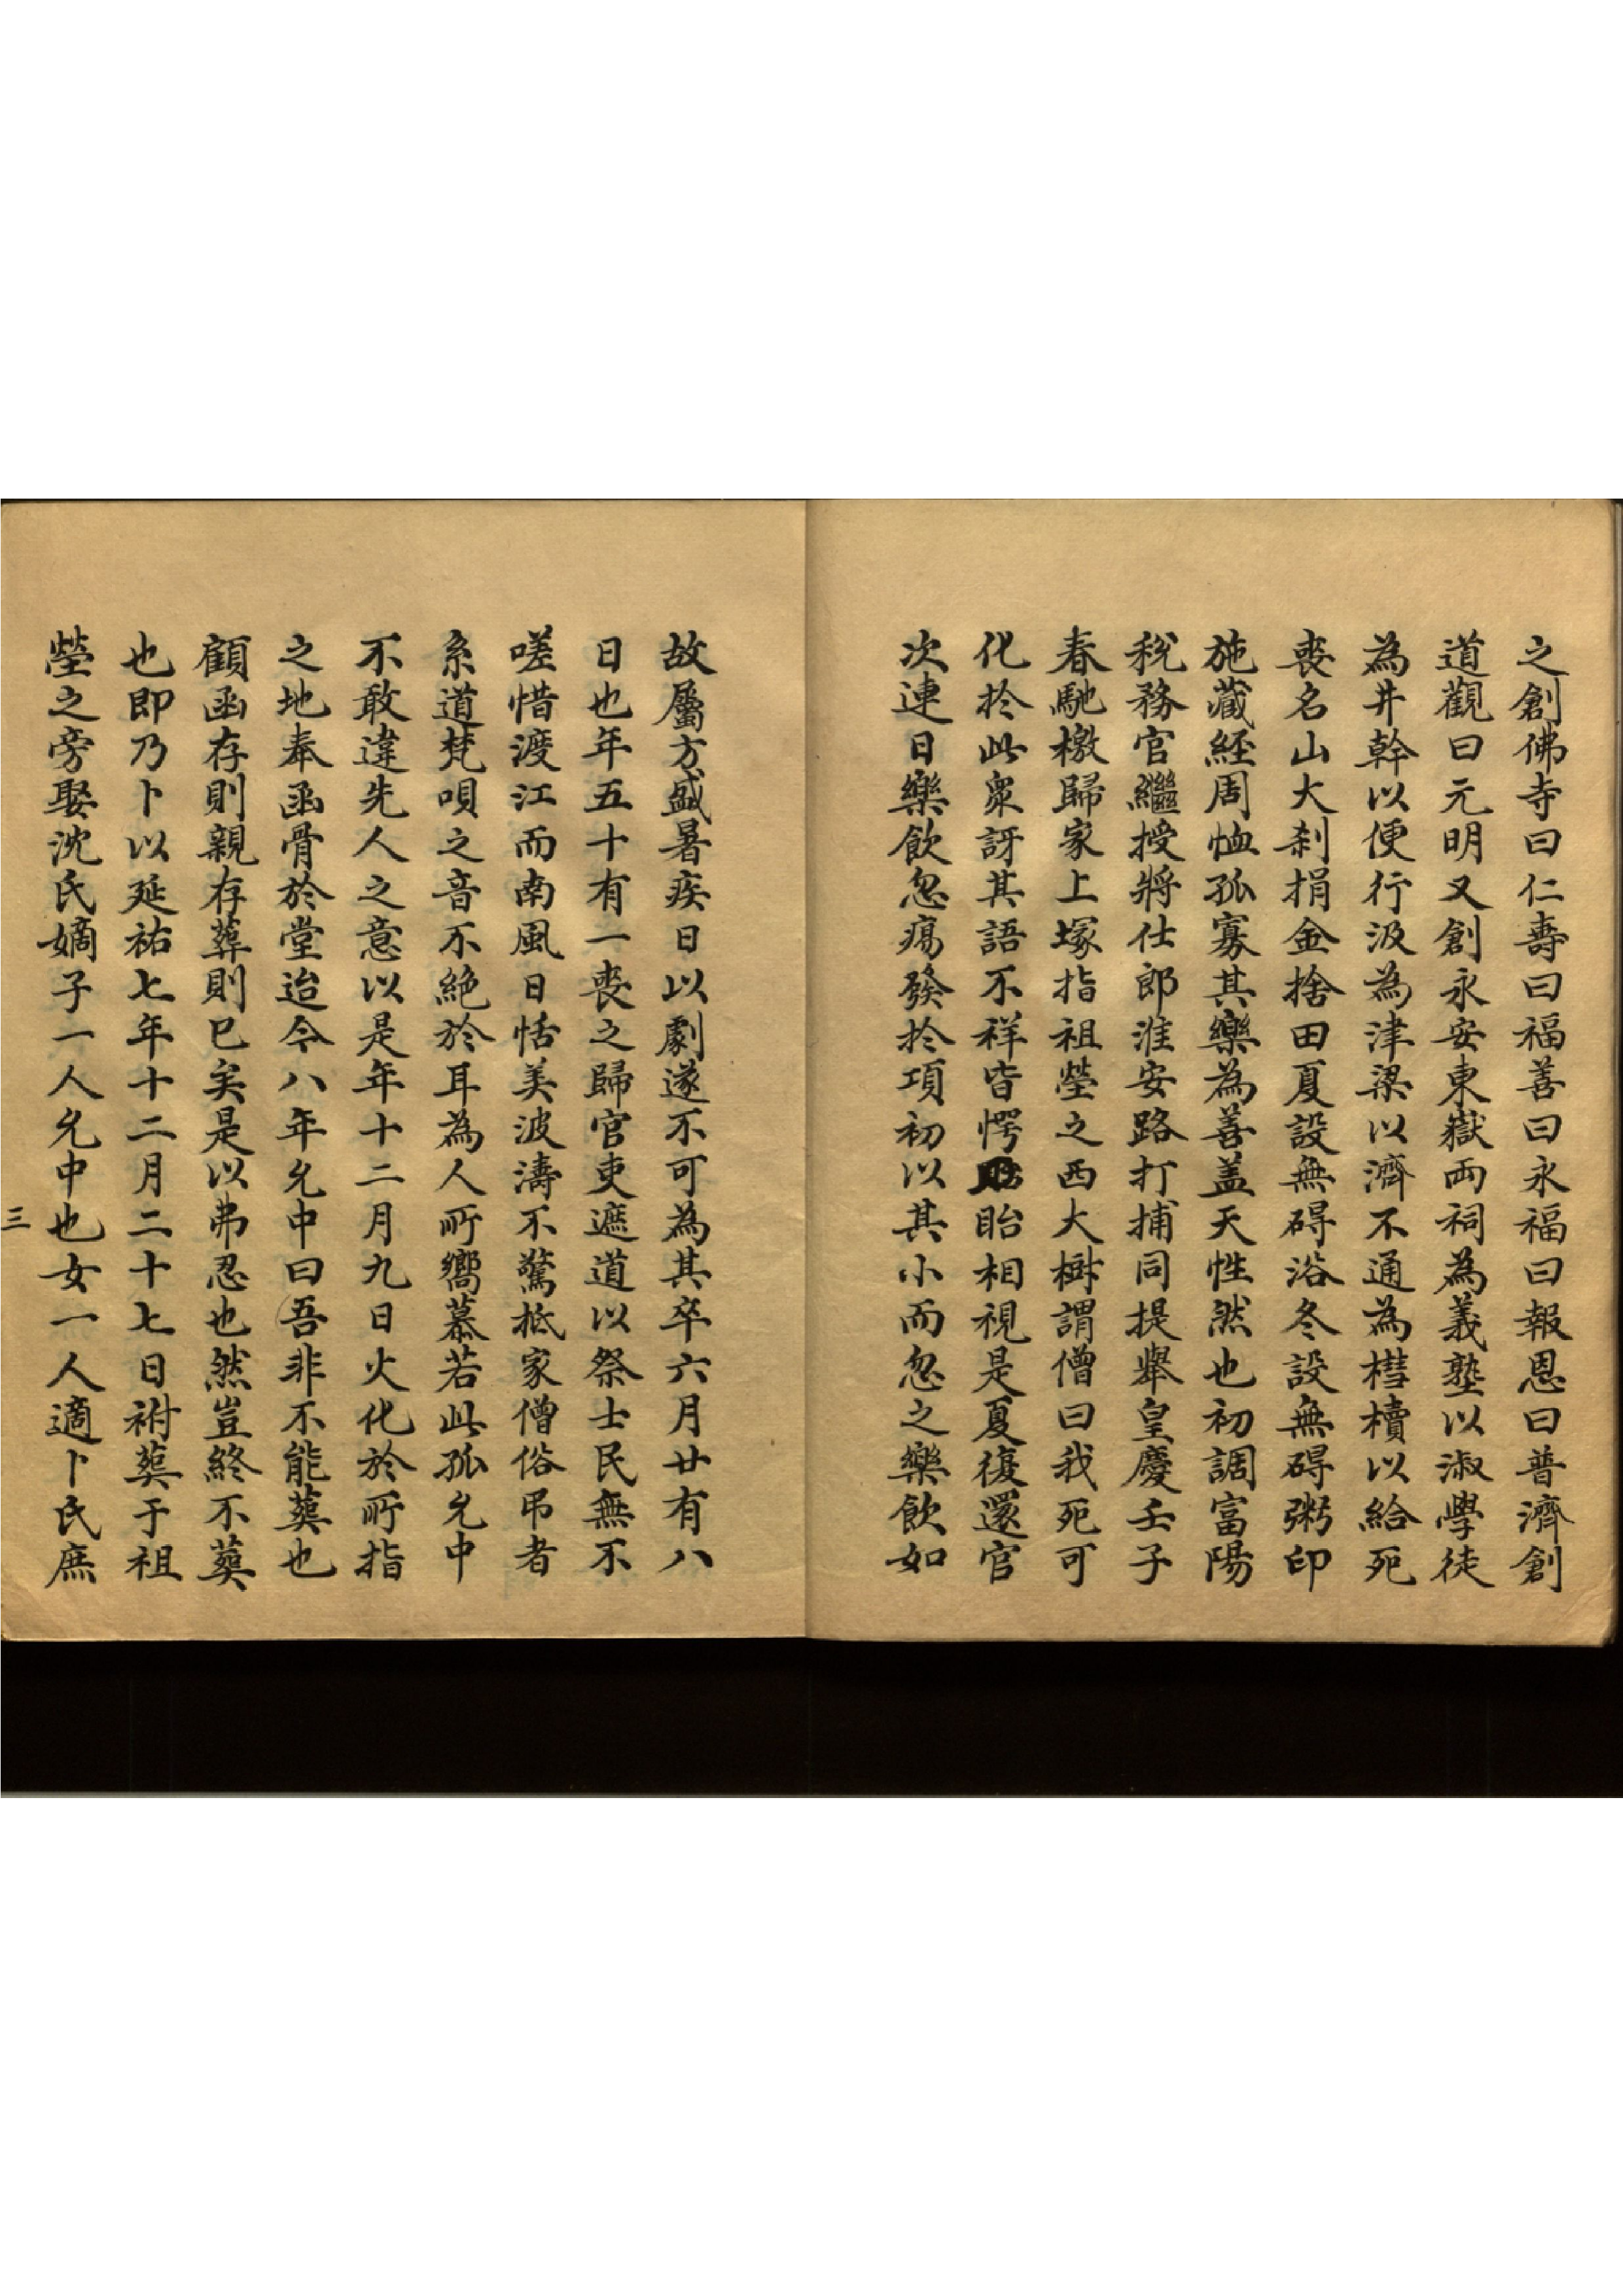 之創佛寺曰仁壽曰福善曰永福曰報恩曰普濟創
道觀曰元明又創永安東嶽両祠為義塾以淑學徒
為井幹以便行汲為津梁以濟不通為槥櫝以給死
喪名山大刹捐金捨田夏設無碍浴冬設無碍粥印
施藏経周恤孤寡其樂為善盖天性然也初調富陽
稅務官繼授將仕郎淮安路打捕同提舉皇慶壬子
春馳檄歸家上塚指祖塋之西大樹謂僧曰我死可
化於此衆訝其語不祥皆愕眙相視是夏復還官
次連日樂飲忽瘍發於項初以其小而忽之樂飲如
故屬方盛暑疾日以劇遂不可為其卒六月廿有八
日也年五十有一喪之歸官吏遮道以祭士民無不
嗟惜渡江而南風日恬美波濤不驚抵家僧俗弔者
系道梵唄之音不絶於耳為人所嚮慕若此孤允中
不敢違先人之意以是年十二月九日火化於所指
之地奉函骨於堂迨今八年允中曰吾非不能葬也
顧函存則親存葬則已矣是以弗忍也然豈終不葬
也即乃卜以延祐七年十二月二十七日祔葬于祖
塋之旁娶沈氏嫡子一人允中也女一人適卜氏庶
三